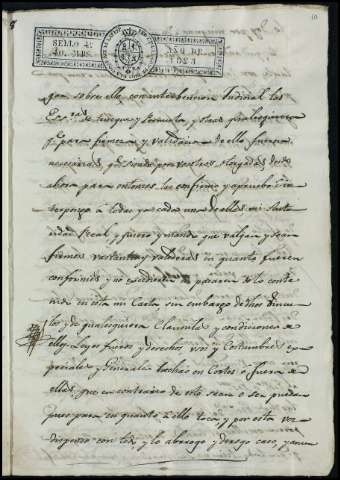 10
SELLO 4º
40. MRS.
AÑO DE
1823
gan sobre ello con autos hicieron Judicial las
Escras de trueque y permuta y otras qualesquiera
qe para firmeza y validacion de ello fueren
necesarias, qe siendo por vos las otorgadas desde
ahora para entonces las confirmo y apruebo e in
terpongo a todas y a cada una de ellas mi Auto
ridad Real, y quiero y mando que valgan y sean
firmes bastantes y valederas en quanto fueren
conformes y no excedieren ó pasaren de lo conte
nido en esta mi Carta sin embargo de dhos Vincu
los y de qualesquiera Clausulas y condiciones de
ellos Leyes fueros y derechos usos y Costumbres es
peciales y Generales hechas en Cortes ó fuera de
ellas, que en contrario de esto sean ó ser puedan
pues para en quanto á ello toca y por esta vez
dispenso con todo y lo abrogo y derogo caso, y anulo